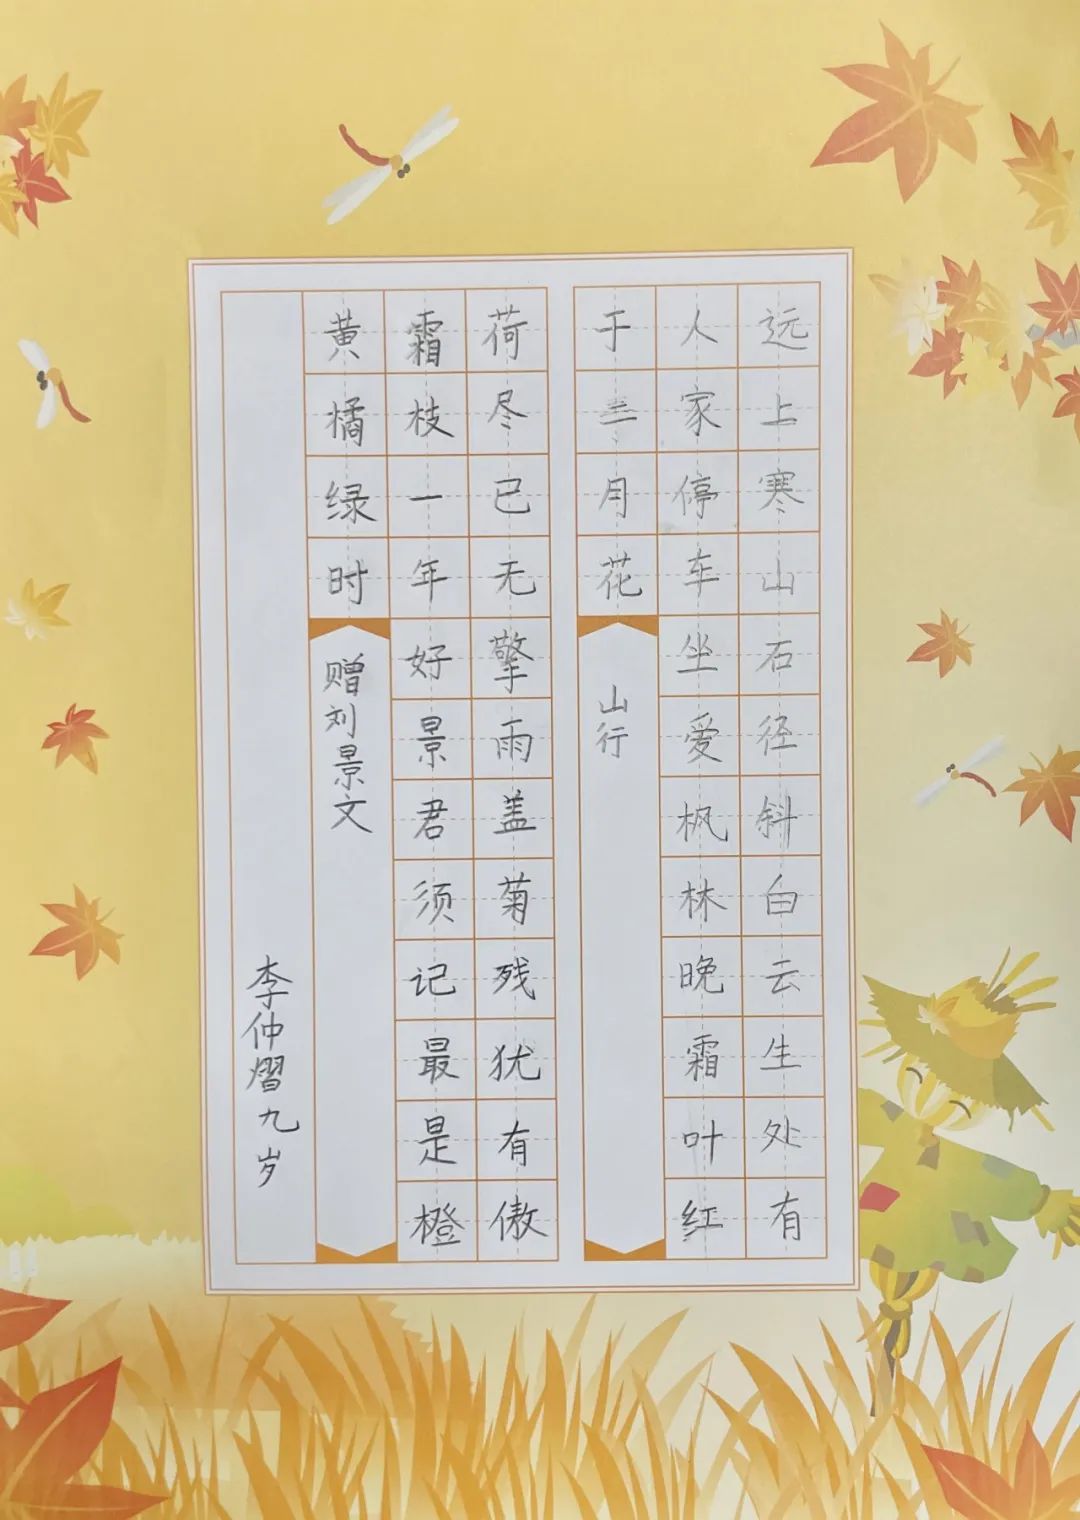 远上寒山石径斜白云生处有
人家停车坐爱枫林晚霜叶红
于二月花 山行
荷尽已无擎雨盖菊残犹有傲
霜枝一年好景君须记最是橙
黄橘绿时 赠刘景文
李仲熠九岁